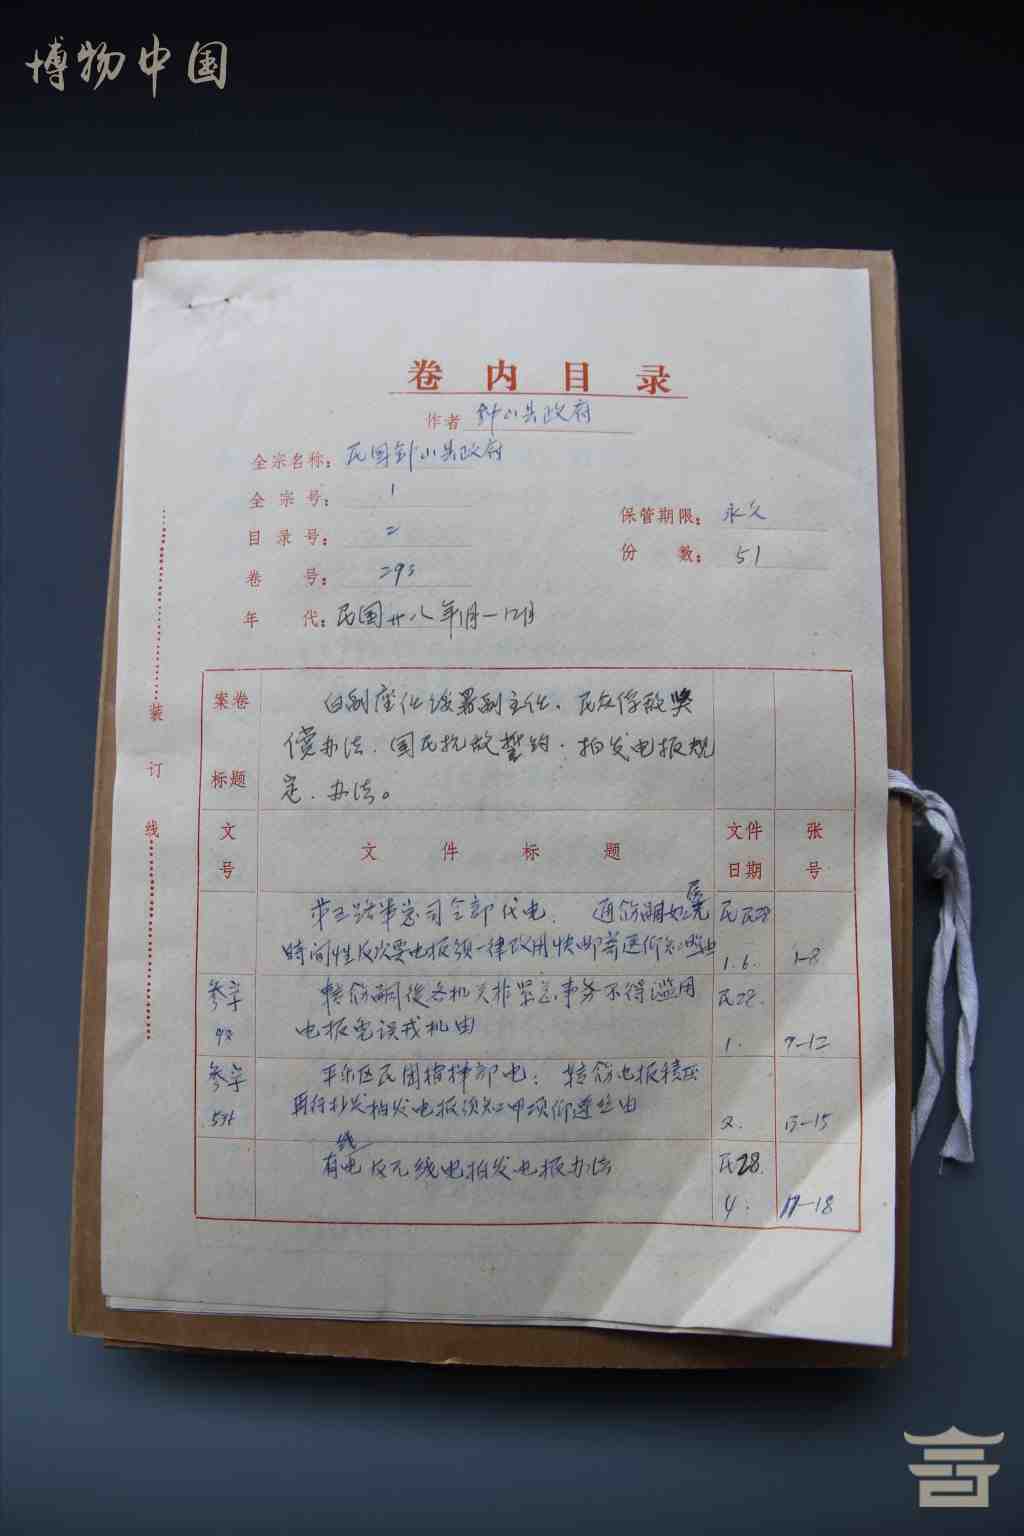 博物中国
卷内目录
作者 钟山县政府
全宗名称：民国钟山县政府
全宗号：1
保管期限：永久
目录号：2
份数：51
卷号：293
年代：民国廿八年1月—12月
案卷标题
白副座任绥署副主任、民众俘敌奖
偿办法、国民抗敌誓约：拍发电报规
定、办法。
文号
文件标题
文件日期
张号
第五路军总司令部代电：通饬嗣如
民28
时间性及次要电报须一律改用快邮寄递仰知照由
1.6.
1-8
参字
转饬嗣后各机关非紧急事务不得滥用
民28.
电报免误戎机由
1.
9-12
参字
平乐区民团指挥部电：转饬电报积压
再行抄发拍发电报须知
仰遵照由
2.
13-15
有线电及无线电拍发电报办法
民28.
4.
17-18
装订线